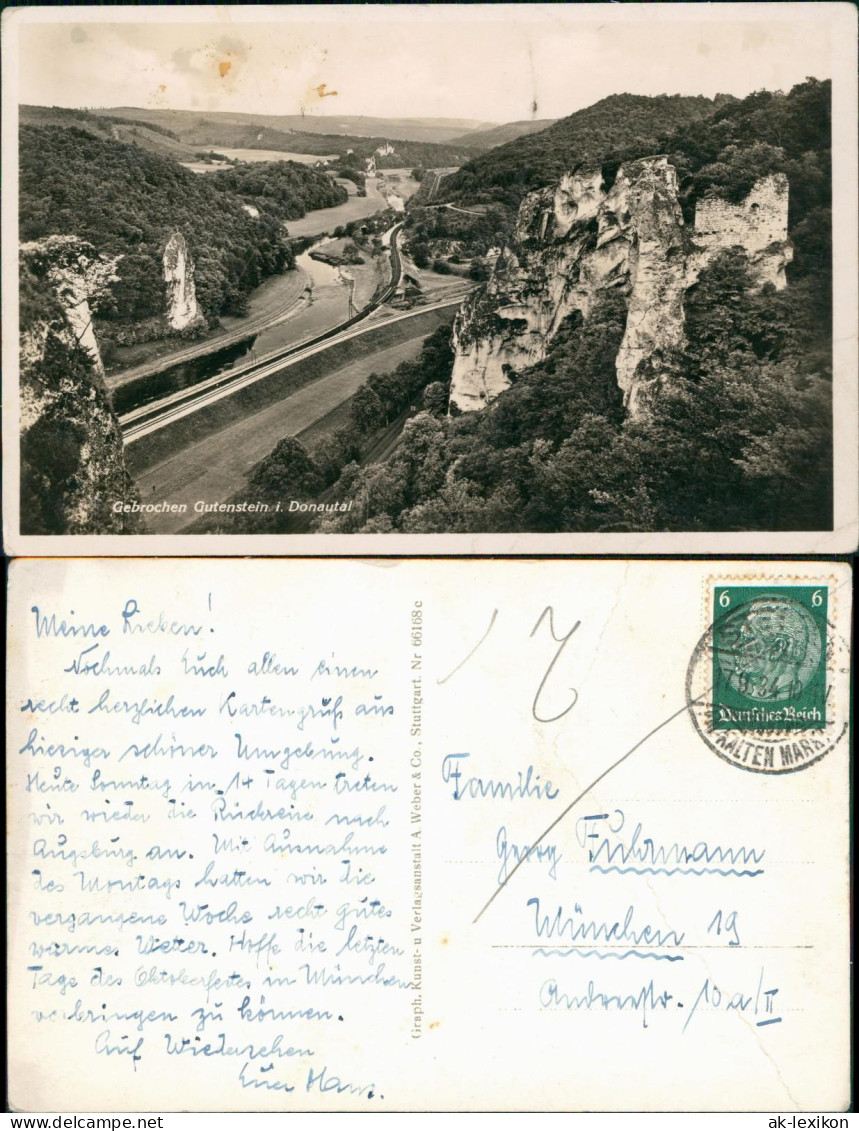 Gebrochen Gutenstein i. Donautal
Meine Lieben!
Nochmals Euch allen einen
recht herzlichen Kartengruß aus
hiesiger schöner Umgebung.
Heute Sonntag in 14 Tagen treten
wir wieder die Rückreise nach
Augsburg an. Mit Ausnahme
des Montags hatten wir die
vergangene Woche recht gutes
warmes Wetter. Hoffe die letzten
Tage des Oktoberfestes in München
verbringen zu können.
Auf Wiedersehen
Euer Hans.
Graph. Kunst- u Verlagsanstalt A. Weber & Co., Stuttgart. Nr 66168c
6 6
Deutsches Reich
KALTEN MARKT
Familie
Georg Fuhrmann
München 19
Andreestr. 10a/II
www.ak-ansichtskarten.de
ak-lexikon